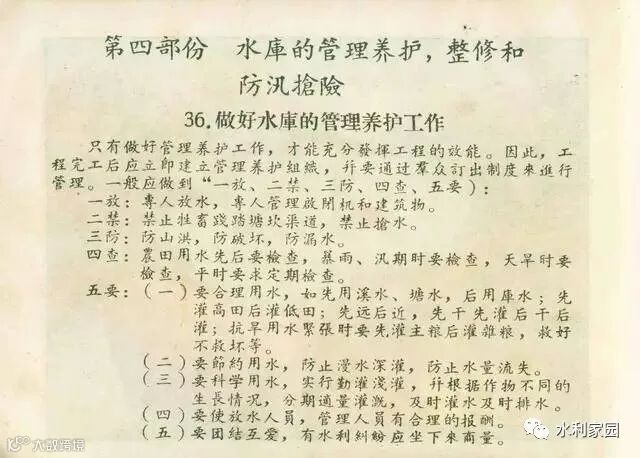 第四部份　水庫的管理养护，整修和
防汛搶險
36.做好水庫的管理养护工作
只有做好管理养护工作，才能充分發揮工程的效能。因此，工
程完工后应立即建立管理养护組織，幷要通过羣众訂出制度來進行
管理。一般应做到“一放、二禁、三防、四查、五要）：
一放：專人放水，專人管理啟閉机和建筑物。
二禁：禁止牲畜踐踏塘坎渠道，禁止搶水。
三防：防山洪，防破坏，防漏水。
四查：農田用水先后要檢查，暴雨、汛期时要檢查，天旱时要
檢查，平时要求定期檢查。
五要：（一）要合理用水，如先用溪水、塘水，后用庫水；先
灌高田后灌低田；先远后近，先干先灌后干后
灌；抗旱用水緊張时要先灌主粮后灌雜粮，救好
不救坏等。
（二）要節約用水，防止漫水深灌，防止水量流失。
（三）要科学用水，实行勤灌淺灌，幷根据作物不同的
生長情况，分期適量灌溉，及时灌水及时排水。
（四）要使放水人員，管理人員有合理的报酬。
（五）要团结互爱，有水利糾紛应坐下來商量。
大数跨境
水利家园